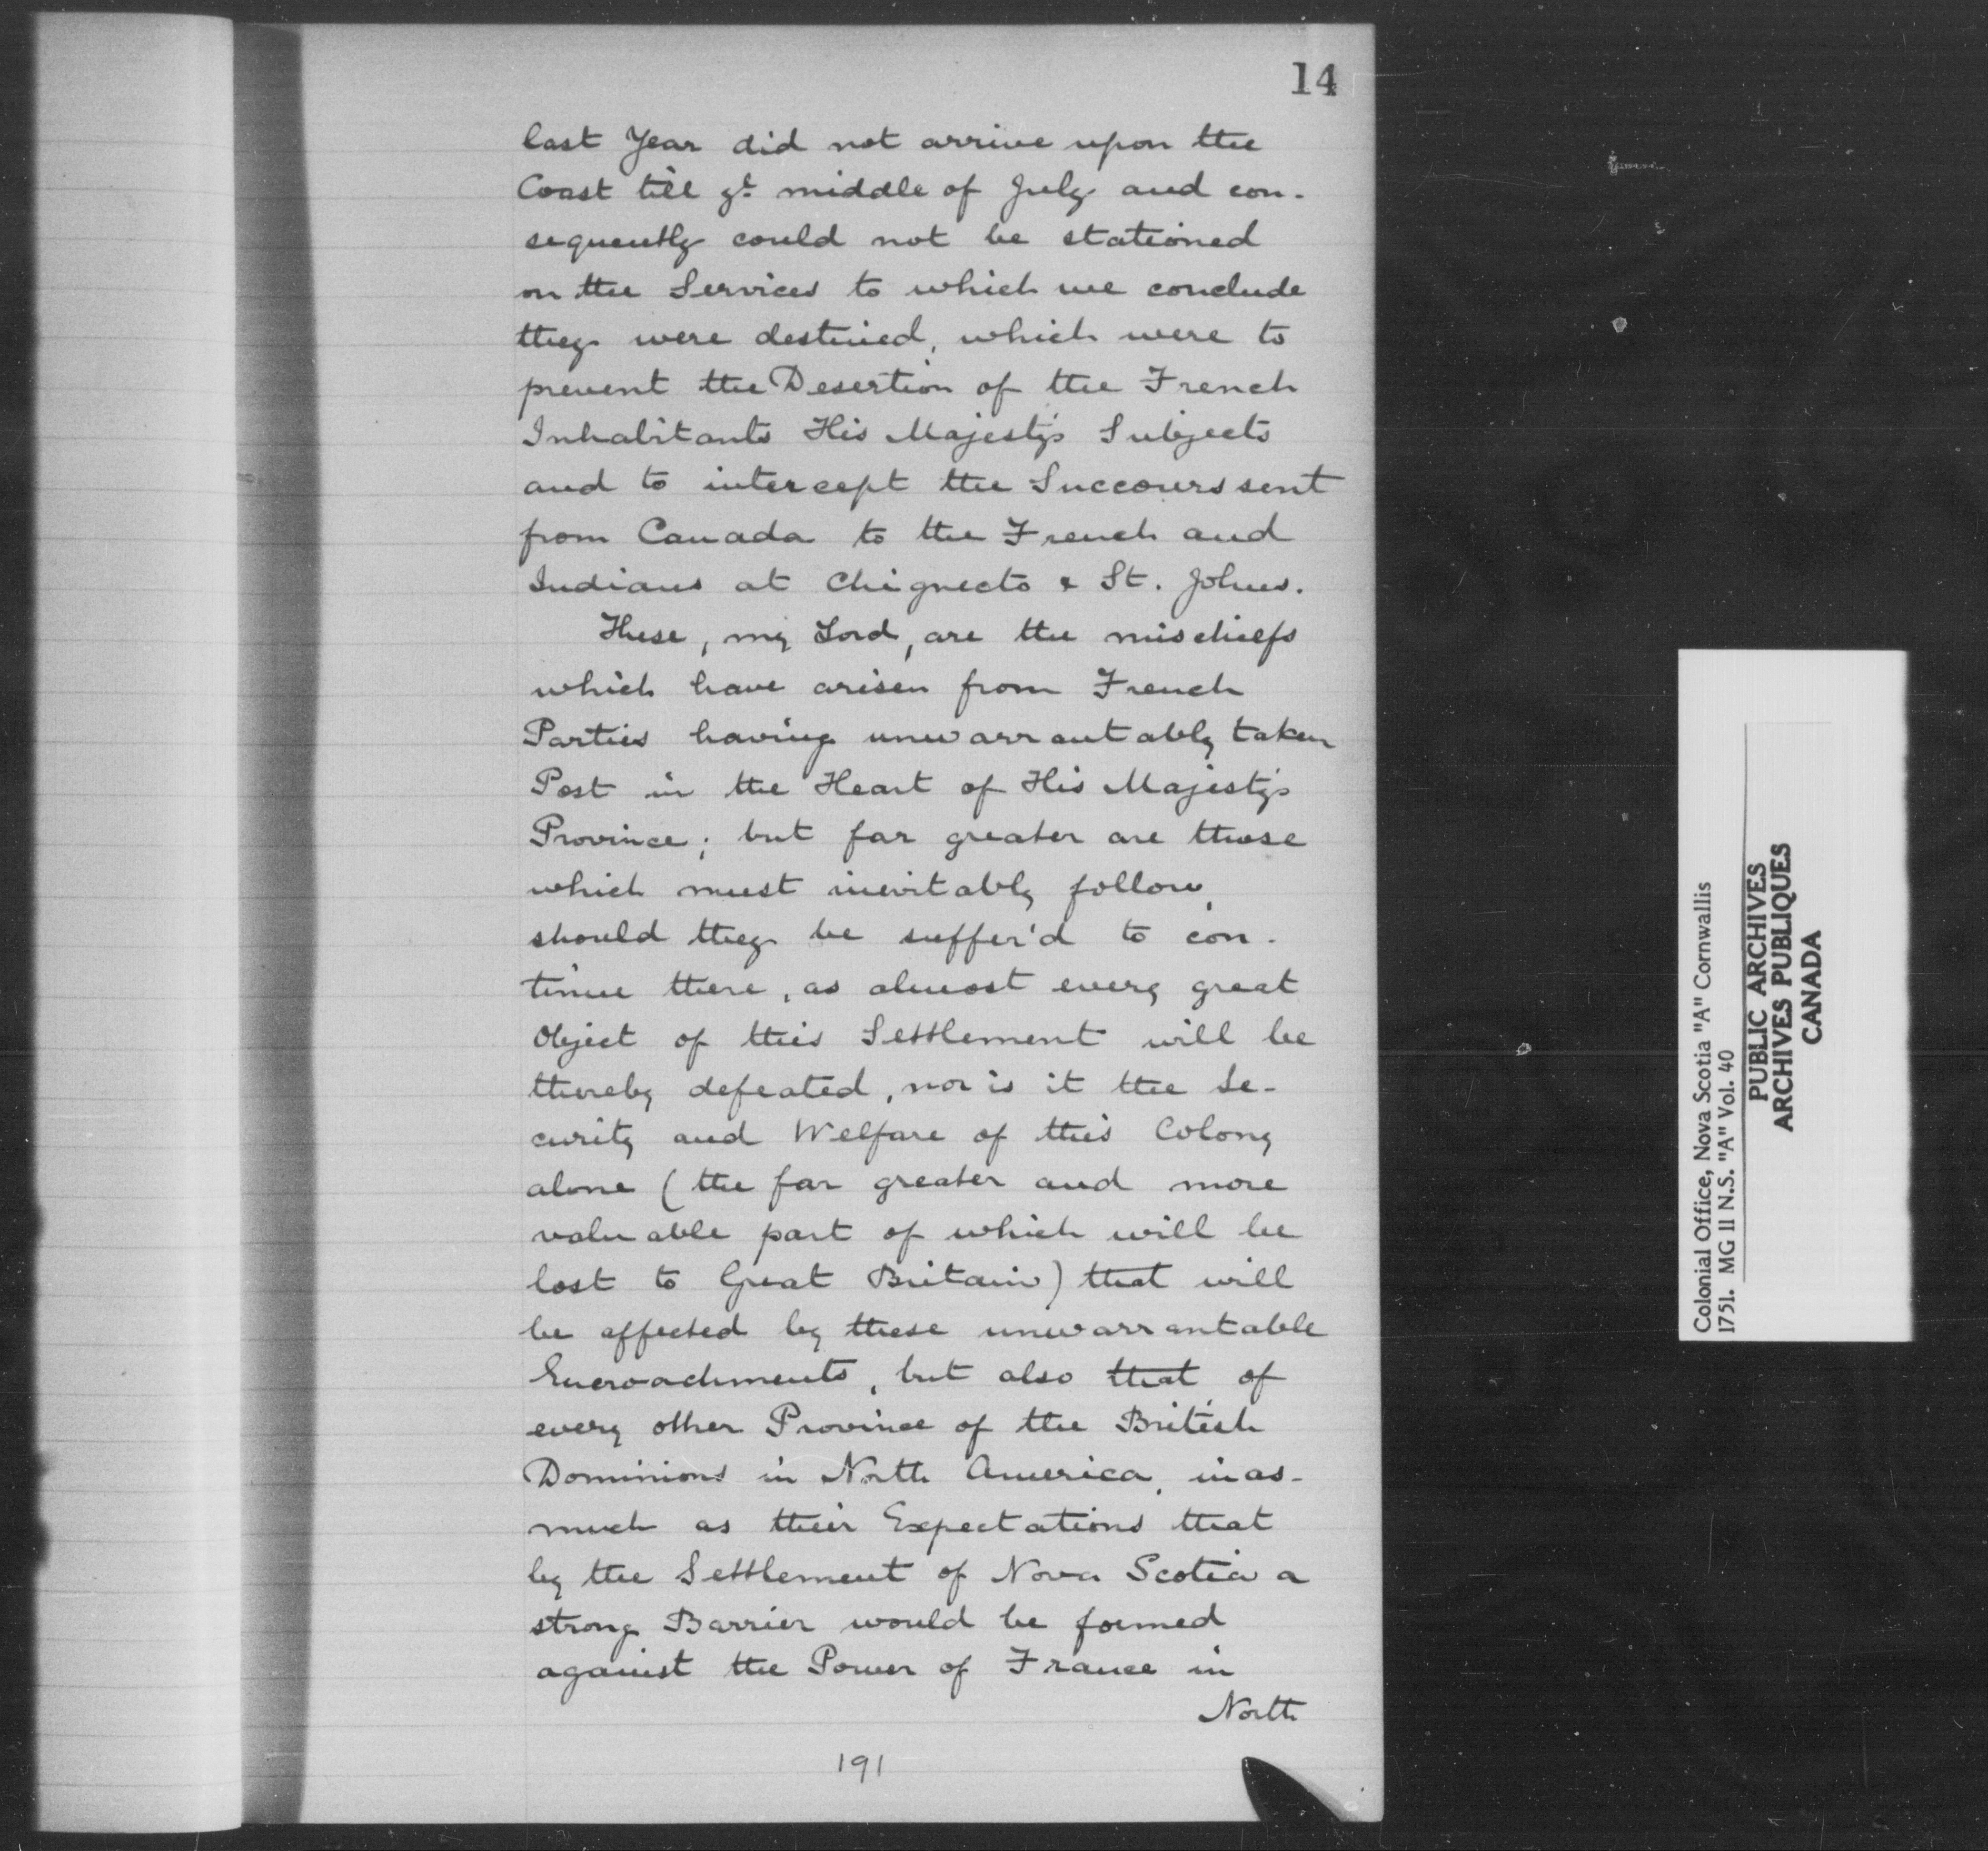 14
last Year did not arrive upon the
Coast till ye middle of July and con-
sequently could not be stationed
on the Services to which we conclude
they were destined, which were to
prevent the Desertion of the French
Inhabitants His Majesty's Subjects
and to intercept the Succours sent
from Canada to the French and
Indians at Chignecto & St. Johns.
These, my Lord, are the mischiefs
which have arisen from French
Parties having unwarrantably taken
Post in the Heart of His Majesty's
Province; but far greater are those
which must inevitably follow,
should they be suffer'd to con-
tinue there, as almost every great
Object of this Settlement will be
thereby defeated, nor is it the Se-
curity and Welfare of this Colony
alone (the far greater and more
valuable part of which will be
lost to Great Britain) that will
be affected by these unwarrantable
Encroachments, but also that of
every other Province of the British
Dominions in North America, inas-
much as their Expectations that
by the Settlement of Nova Scotia a
strong Barrier would be formed
against the Power of France in
North
191
Colonial Office, Nova Scotia "A" Cornwallis
1751. MG 11 N.S. "A" Vol. 40
PUBLIC ARCHIVES
ARCHIVES PUBLIQUES
CANADA